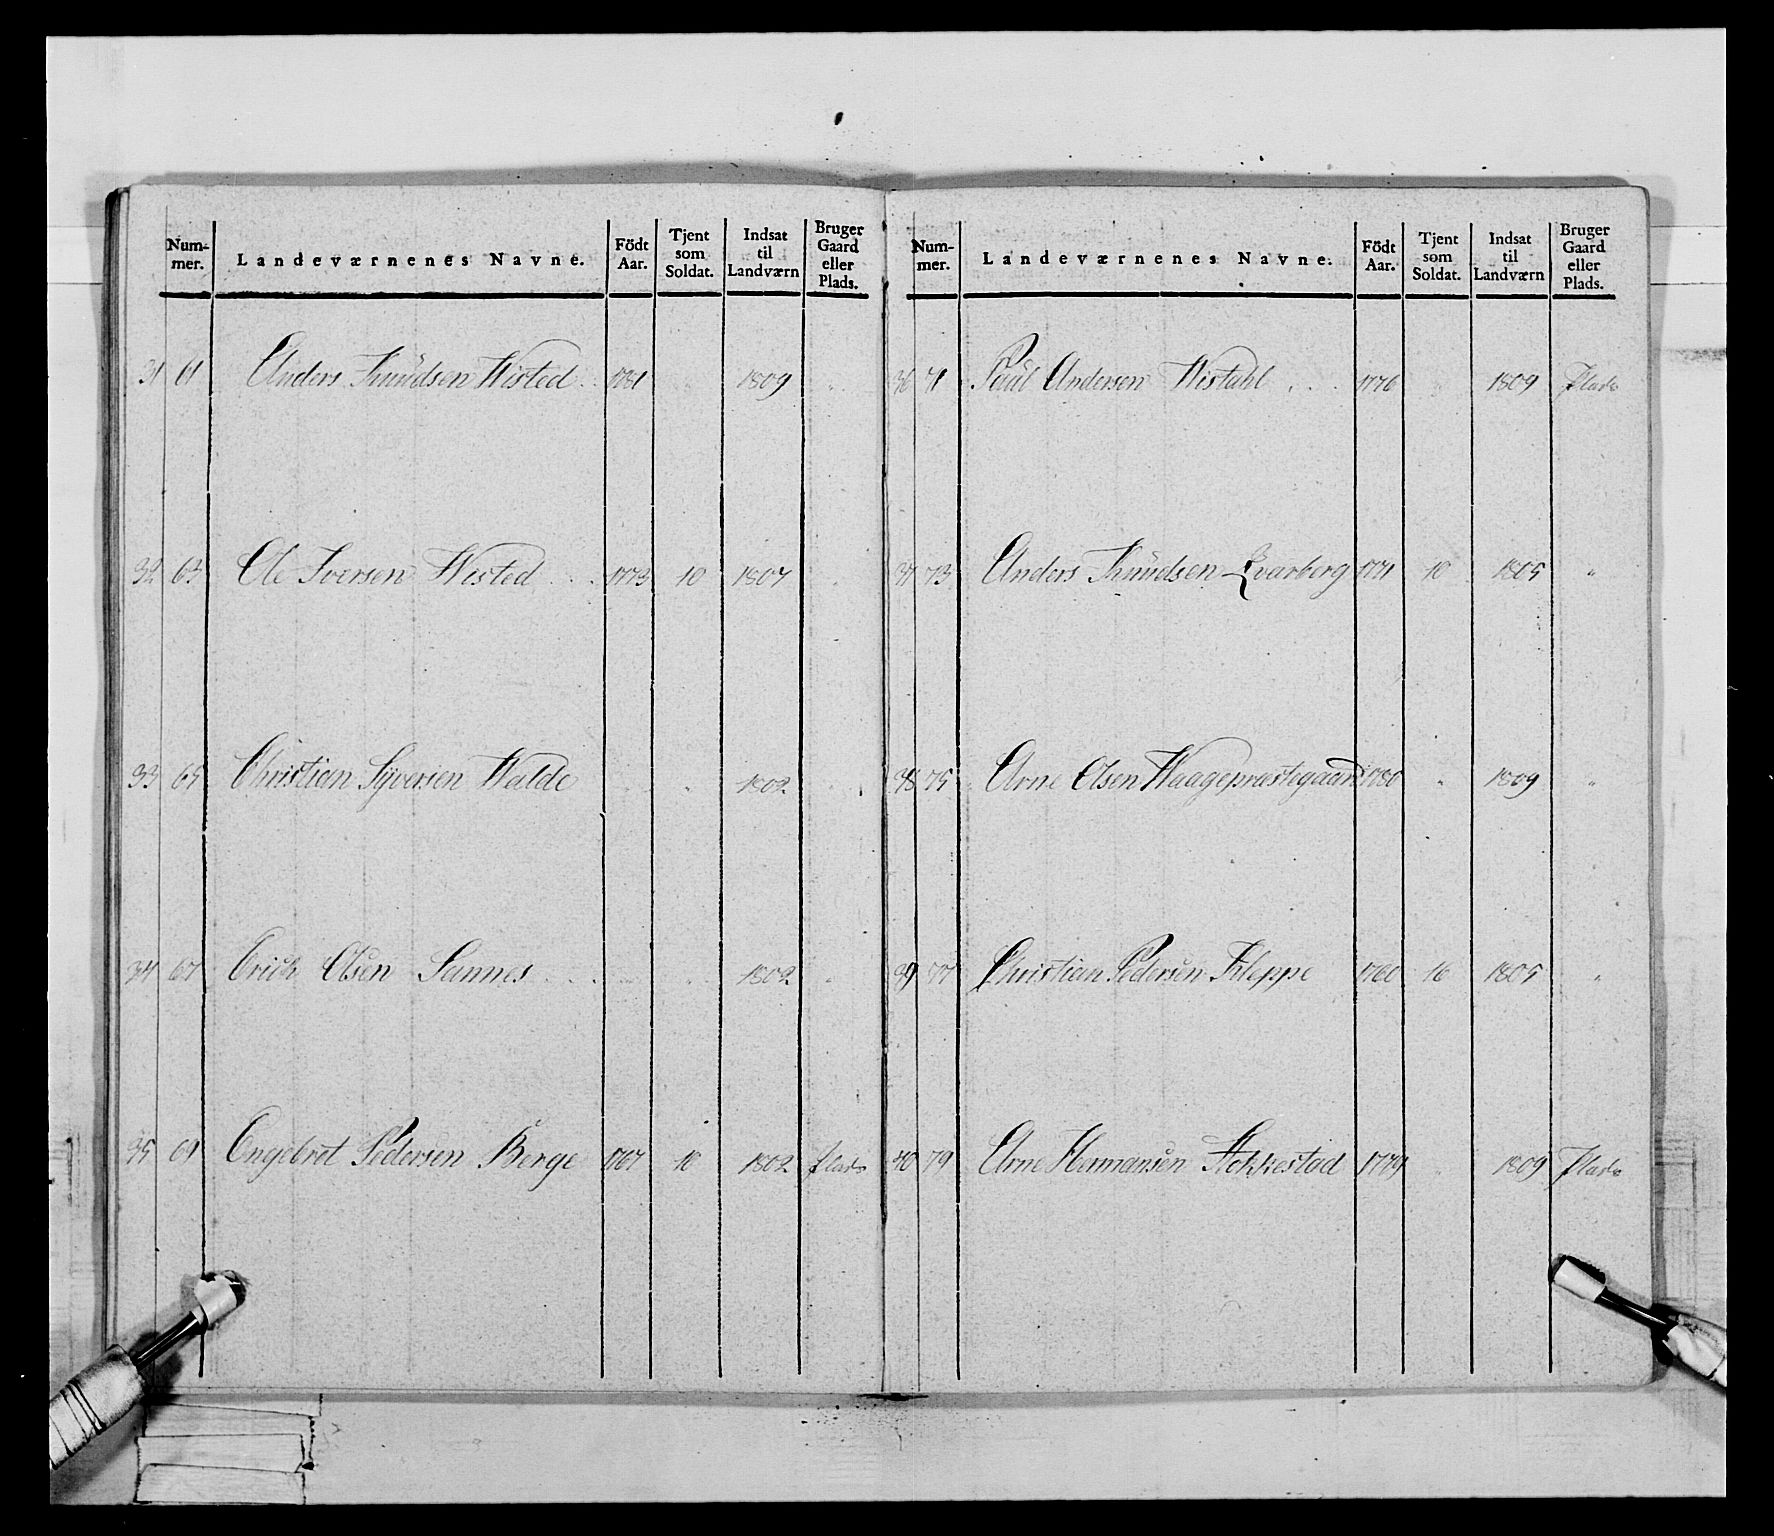 Num-mer. Landeværnenes Navne. Födt Aar. Tjent som Soldat. Indsat til Landværn Bruger Gaard eller Plads.
31 61 Anders Knudsen Wisted . . 1781 1809 "
32 63 Ole Iversen Wisted . . . 1773 10 1807
33 65 Christian Syversen Walde " 1802 "
34 67 Erich Olsen Sannes . . . " 1802 "
35 69 Engebret Pedersen Berge 1767 10 1802 Plads
Num-mer. Landeværnenes Navne. Födt Aar. Tjent som Soldat. Indsat til Landværn Bruger Gaard eller Plads.
36 71 Paul Andersen Wistahl . . . 1776 " 1809 Plads
37 73 Anders Knudsen Qvarberg 1771 10 1805 "
38 75 Arne Olsen Waagepræstegaard 1780 " 1809 "
39 77 Christian Pedersen Kleppe 1760 16 1805 "
40 79 Arne Hermansen Stokkestad 1779 1809 Plads